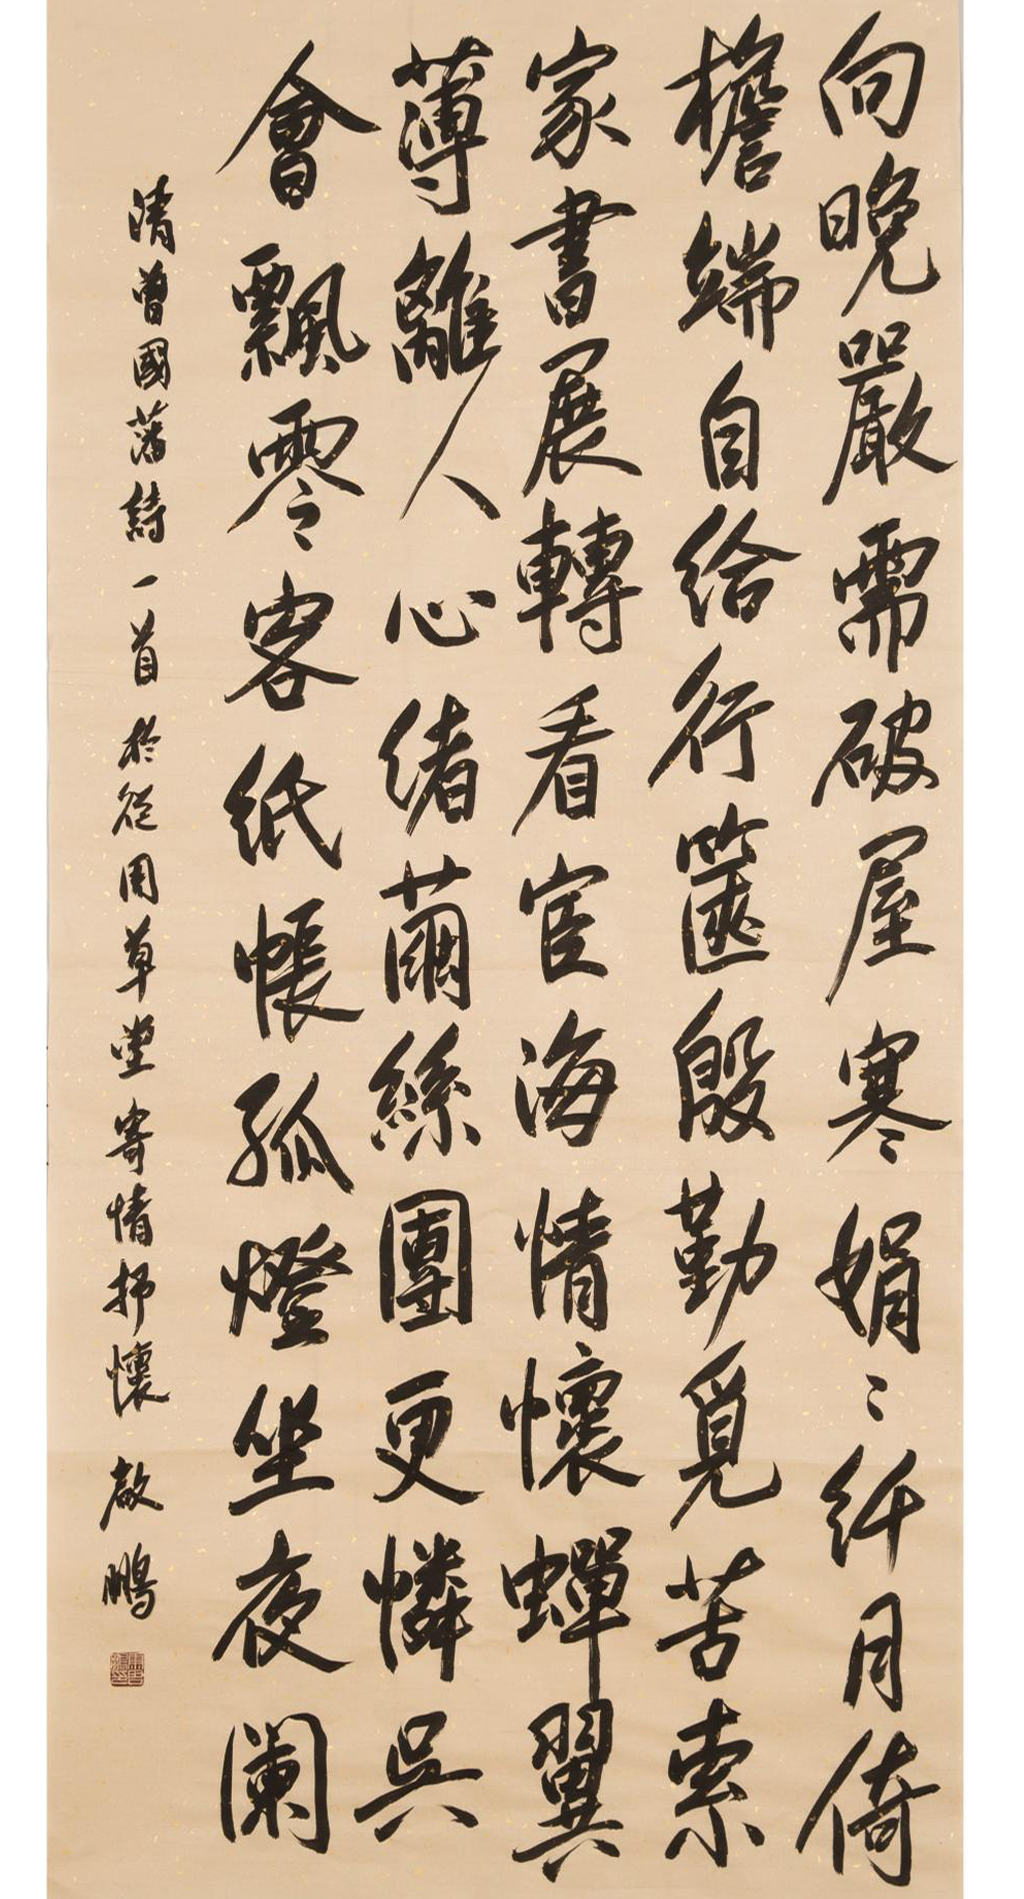 向晚嚴霜破屋寒娟〻纤月倚
檐端自给行篋殷勤覓苦索
家書展轉看宦海情懷蟬翼
薄離人心绪繭絲團更憐吳
會飄零客纸帳孤燈坐夜阑
清曾國藩詩一首於從周草堂寄情抒懷 啟鵬